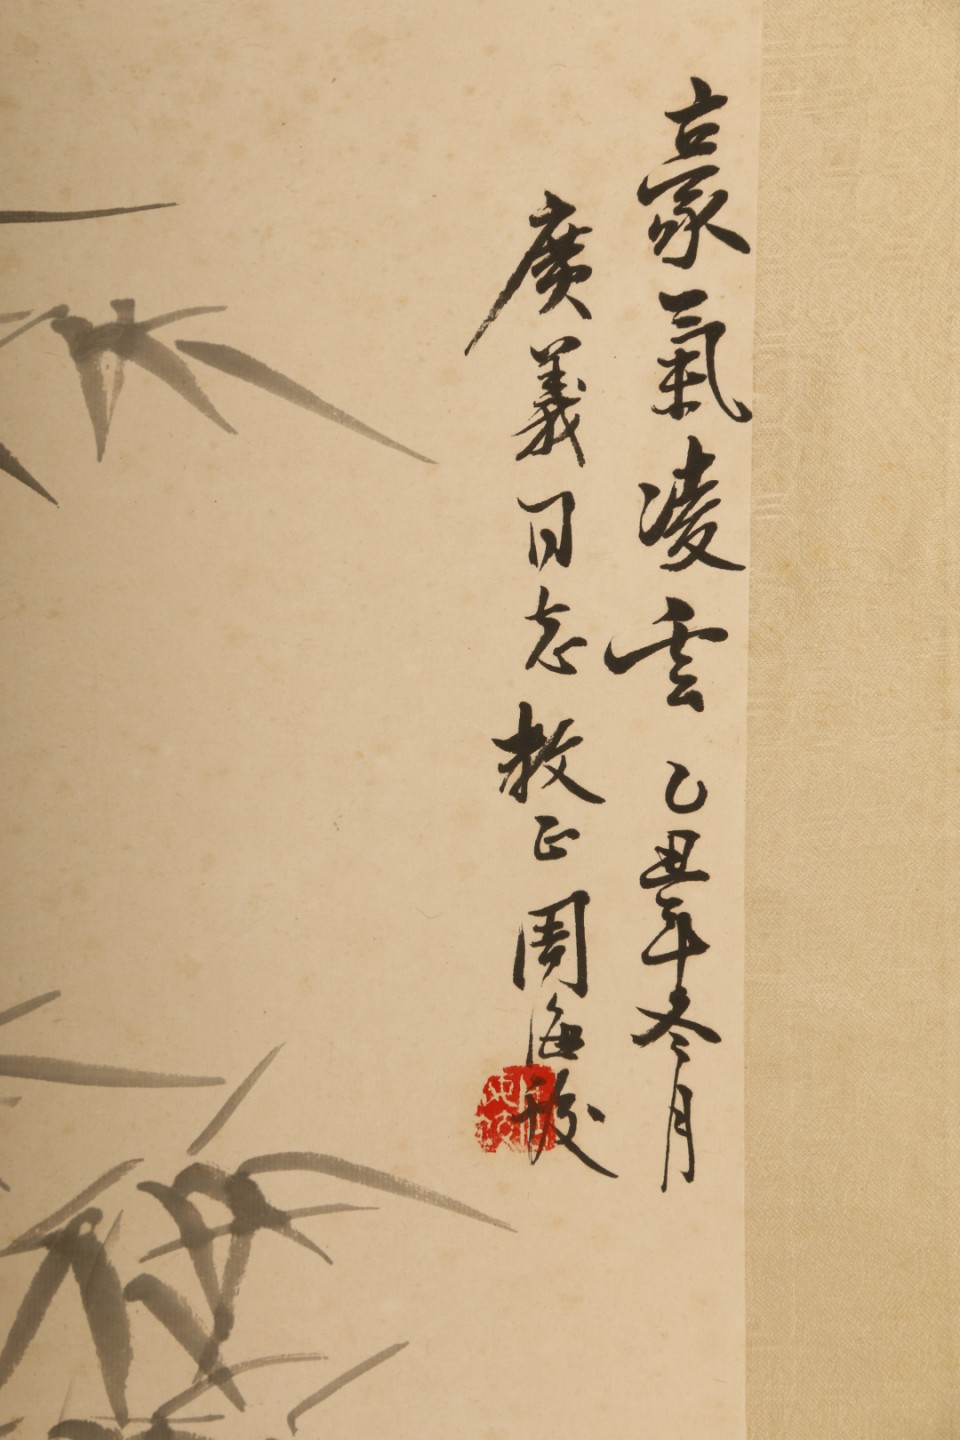 豪氣凌雲 乙丑年冬月
廣義同志教正 周海